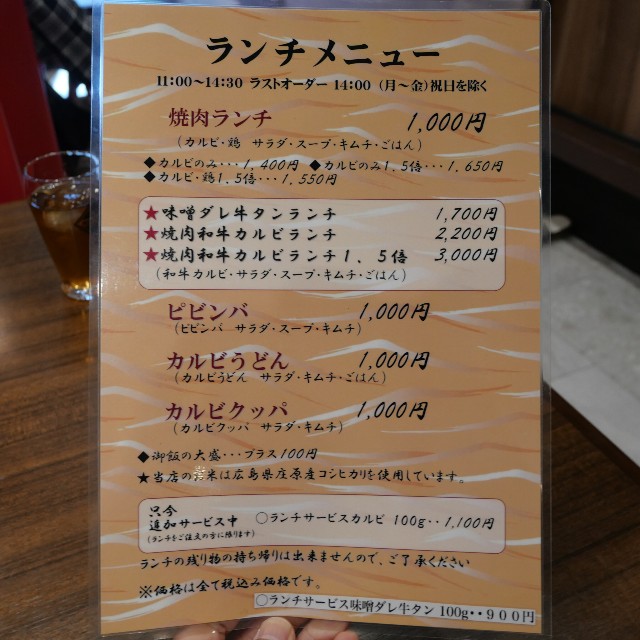 ランチメニュー
11:00～14:30 ラストオーダー 14:00 (月～金)祝日を除く
焼肉ランチ 1,000円
(カルビ・鶏 サラダ・スープ・キムチ・ごはん)
◆カルビのみ・・・1,400円 ◆カルビのみ1.5倍・・・1,650円
◆カルビ・鶏1.5倍・・・1,550円
★味噌ダレ牛タンランチ 1,700円
★焼肉和牛カルビランチ 2,200円
★焼肉和牛カルビランチ1.5倍 3,000円
(和牛カルビ・サラダ・スープ・キムチ・ごはん)
ピビンバ 1,000円
(ピビンバ サラダ・スープ・キムチ)
カルビうどん 1,000円
(カルビうどん サラダ・キムチ・ごはん)
カルビクッパ 1,000円
(カルビクッパ サラダ・キムチ)
◆御飯の大盛・・・プラス100円
★当店のお米は広島県庄原産コシヒカリを使用しています。
只今
追加サービス中 ○ランチサービスカルビ 100g・・1,100円
(ランチをご注文の方に限ります)
ランチの残り物の持ち帰りは出来ませんので、ご了承ください
※価格は全て税込み価格です。
○ランチサービス味噌ダレ牛タン 100g・・900円